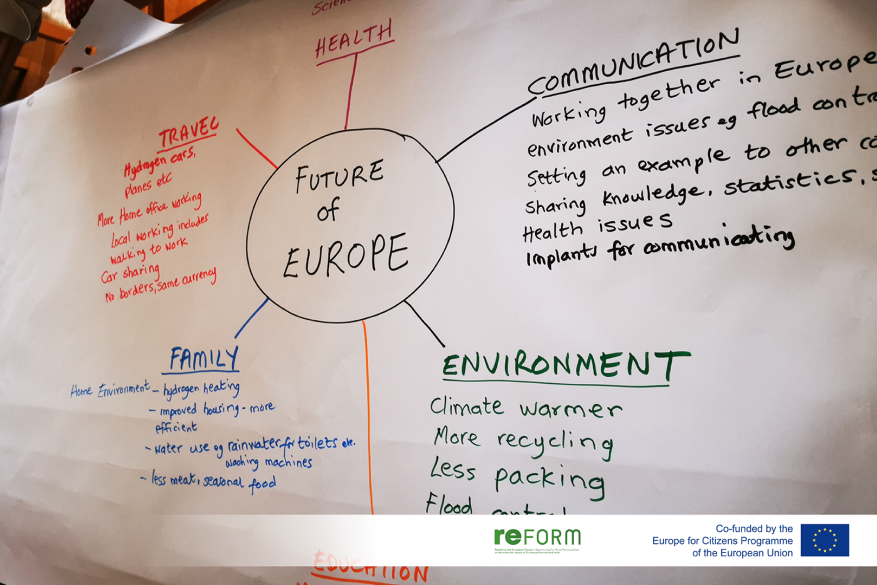 HEALTH
TRAVEL
Hydrogen cars,
planes etc
More Home office working
Local working includes
walking to work
Car sharing
No borders, same currency
FUTURE
of
EUROPE
COMMUNICATION
Working together in Europe
environment issues eg flood contr
Setting an example to other co
Sharing knowledge, statistics, s
Health issues
Implants for communicating
FAMILY
Home Environment - hydrogen heating
- improved housing - more
efficient
- Water use eg rainwater for toilets etc.
washing machines
- less meat, seasonal food
ENVIRONMENT
Climate warmer
More recycling
Less packing
Flood control
EDUCATION
reFORM
Co-funded by the
Europe for Citizens Programme
of the European Union